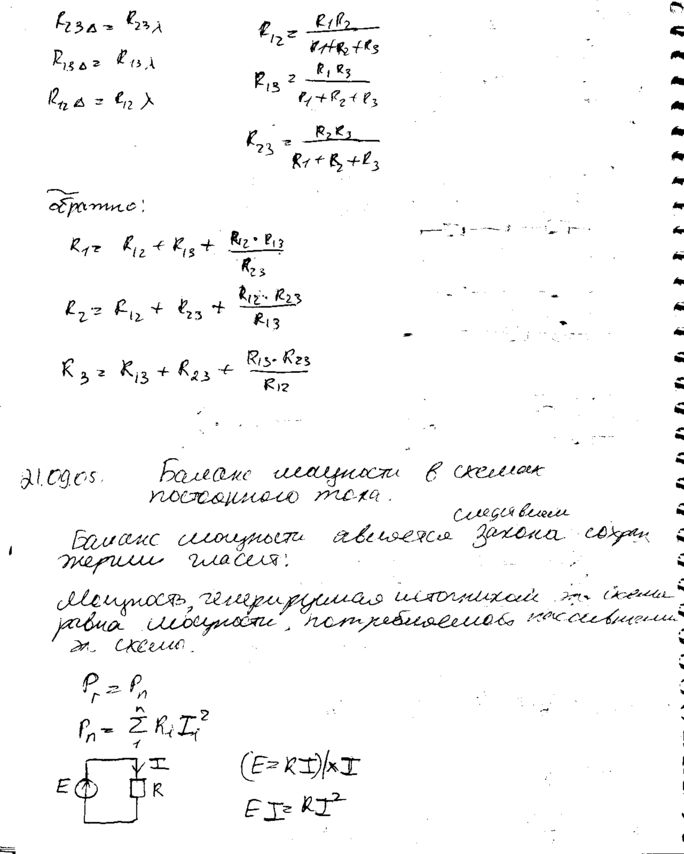 R23Δ = R23λ
R13Δ = R13λ
R12Δ = R12λ
R12 = R1R2 / (R1+R2+R3)
R13 = R1R3 / (R1+R2+R3)
R23 = R2R3 / (R1+R2+R3)
обратно:
R1 = R12 + R13 + R12·R13 / R23
R2 = R12 + R23 + R12·R23 / R13
R3 = R13 + R23 + R13·R23 / R12
21.09.05. Баланс мощности в схемах
постоянного тока.
следствием
Баланс мощности является закона сохран
энергии гласит:
Мощность, генерируемая источником эл. схема
равна мощности, потребляемой пассивными
эл. схемы.
Pг = Pп
Pп = Σ Ri Ii² n 1
E I R
(E = RI) | × I
EI = RI²